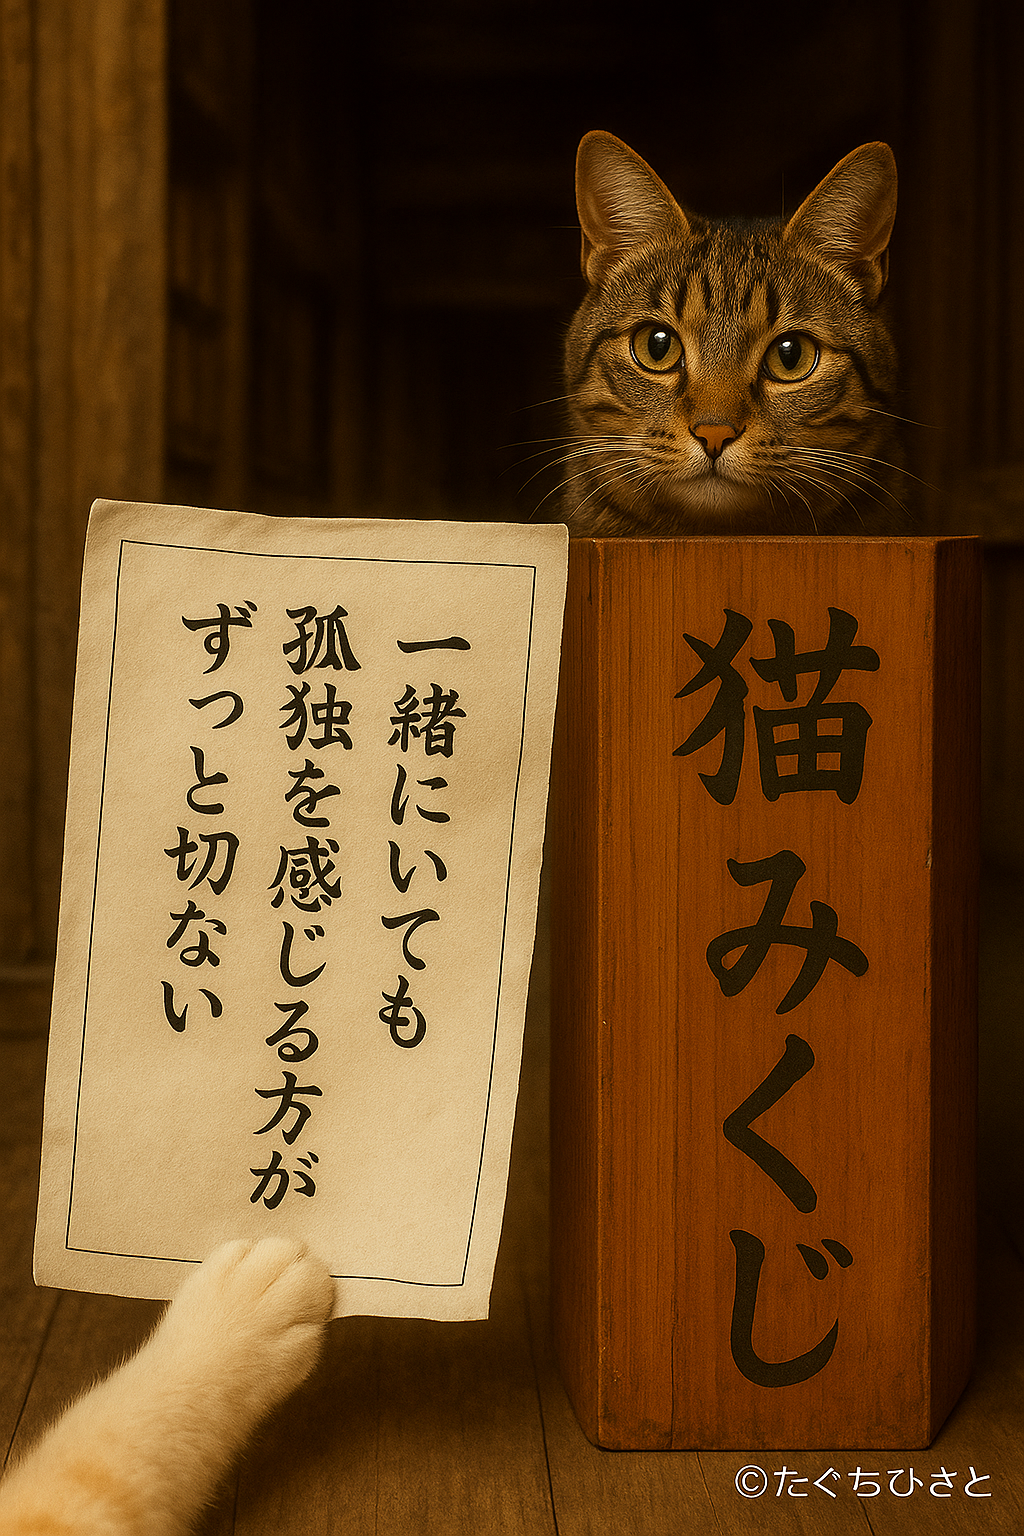 一緒にいても
孤独を感じる方が
ずっと切ない
猫みくじ
©たぐちひさと